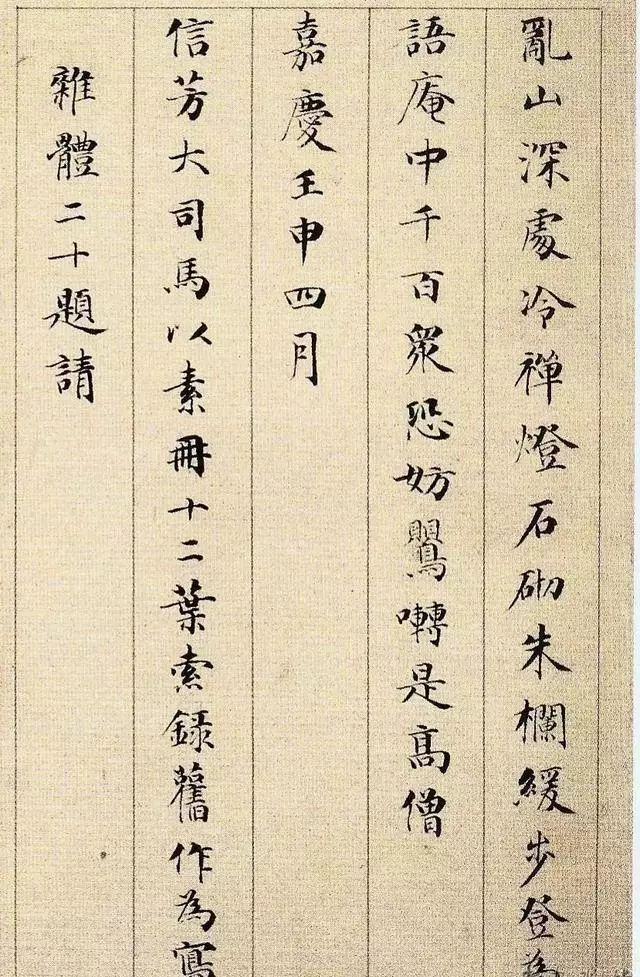 亂山深處冷禪燈石砌朱欄緩步登為
語庵中千百衆恐妨鸎囀是高僧
嘉慶壬申四月
信芳大司馬以素冊十二葉索錄舊作為寫
雜體二十題請